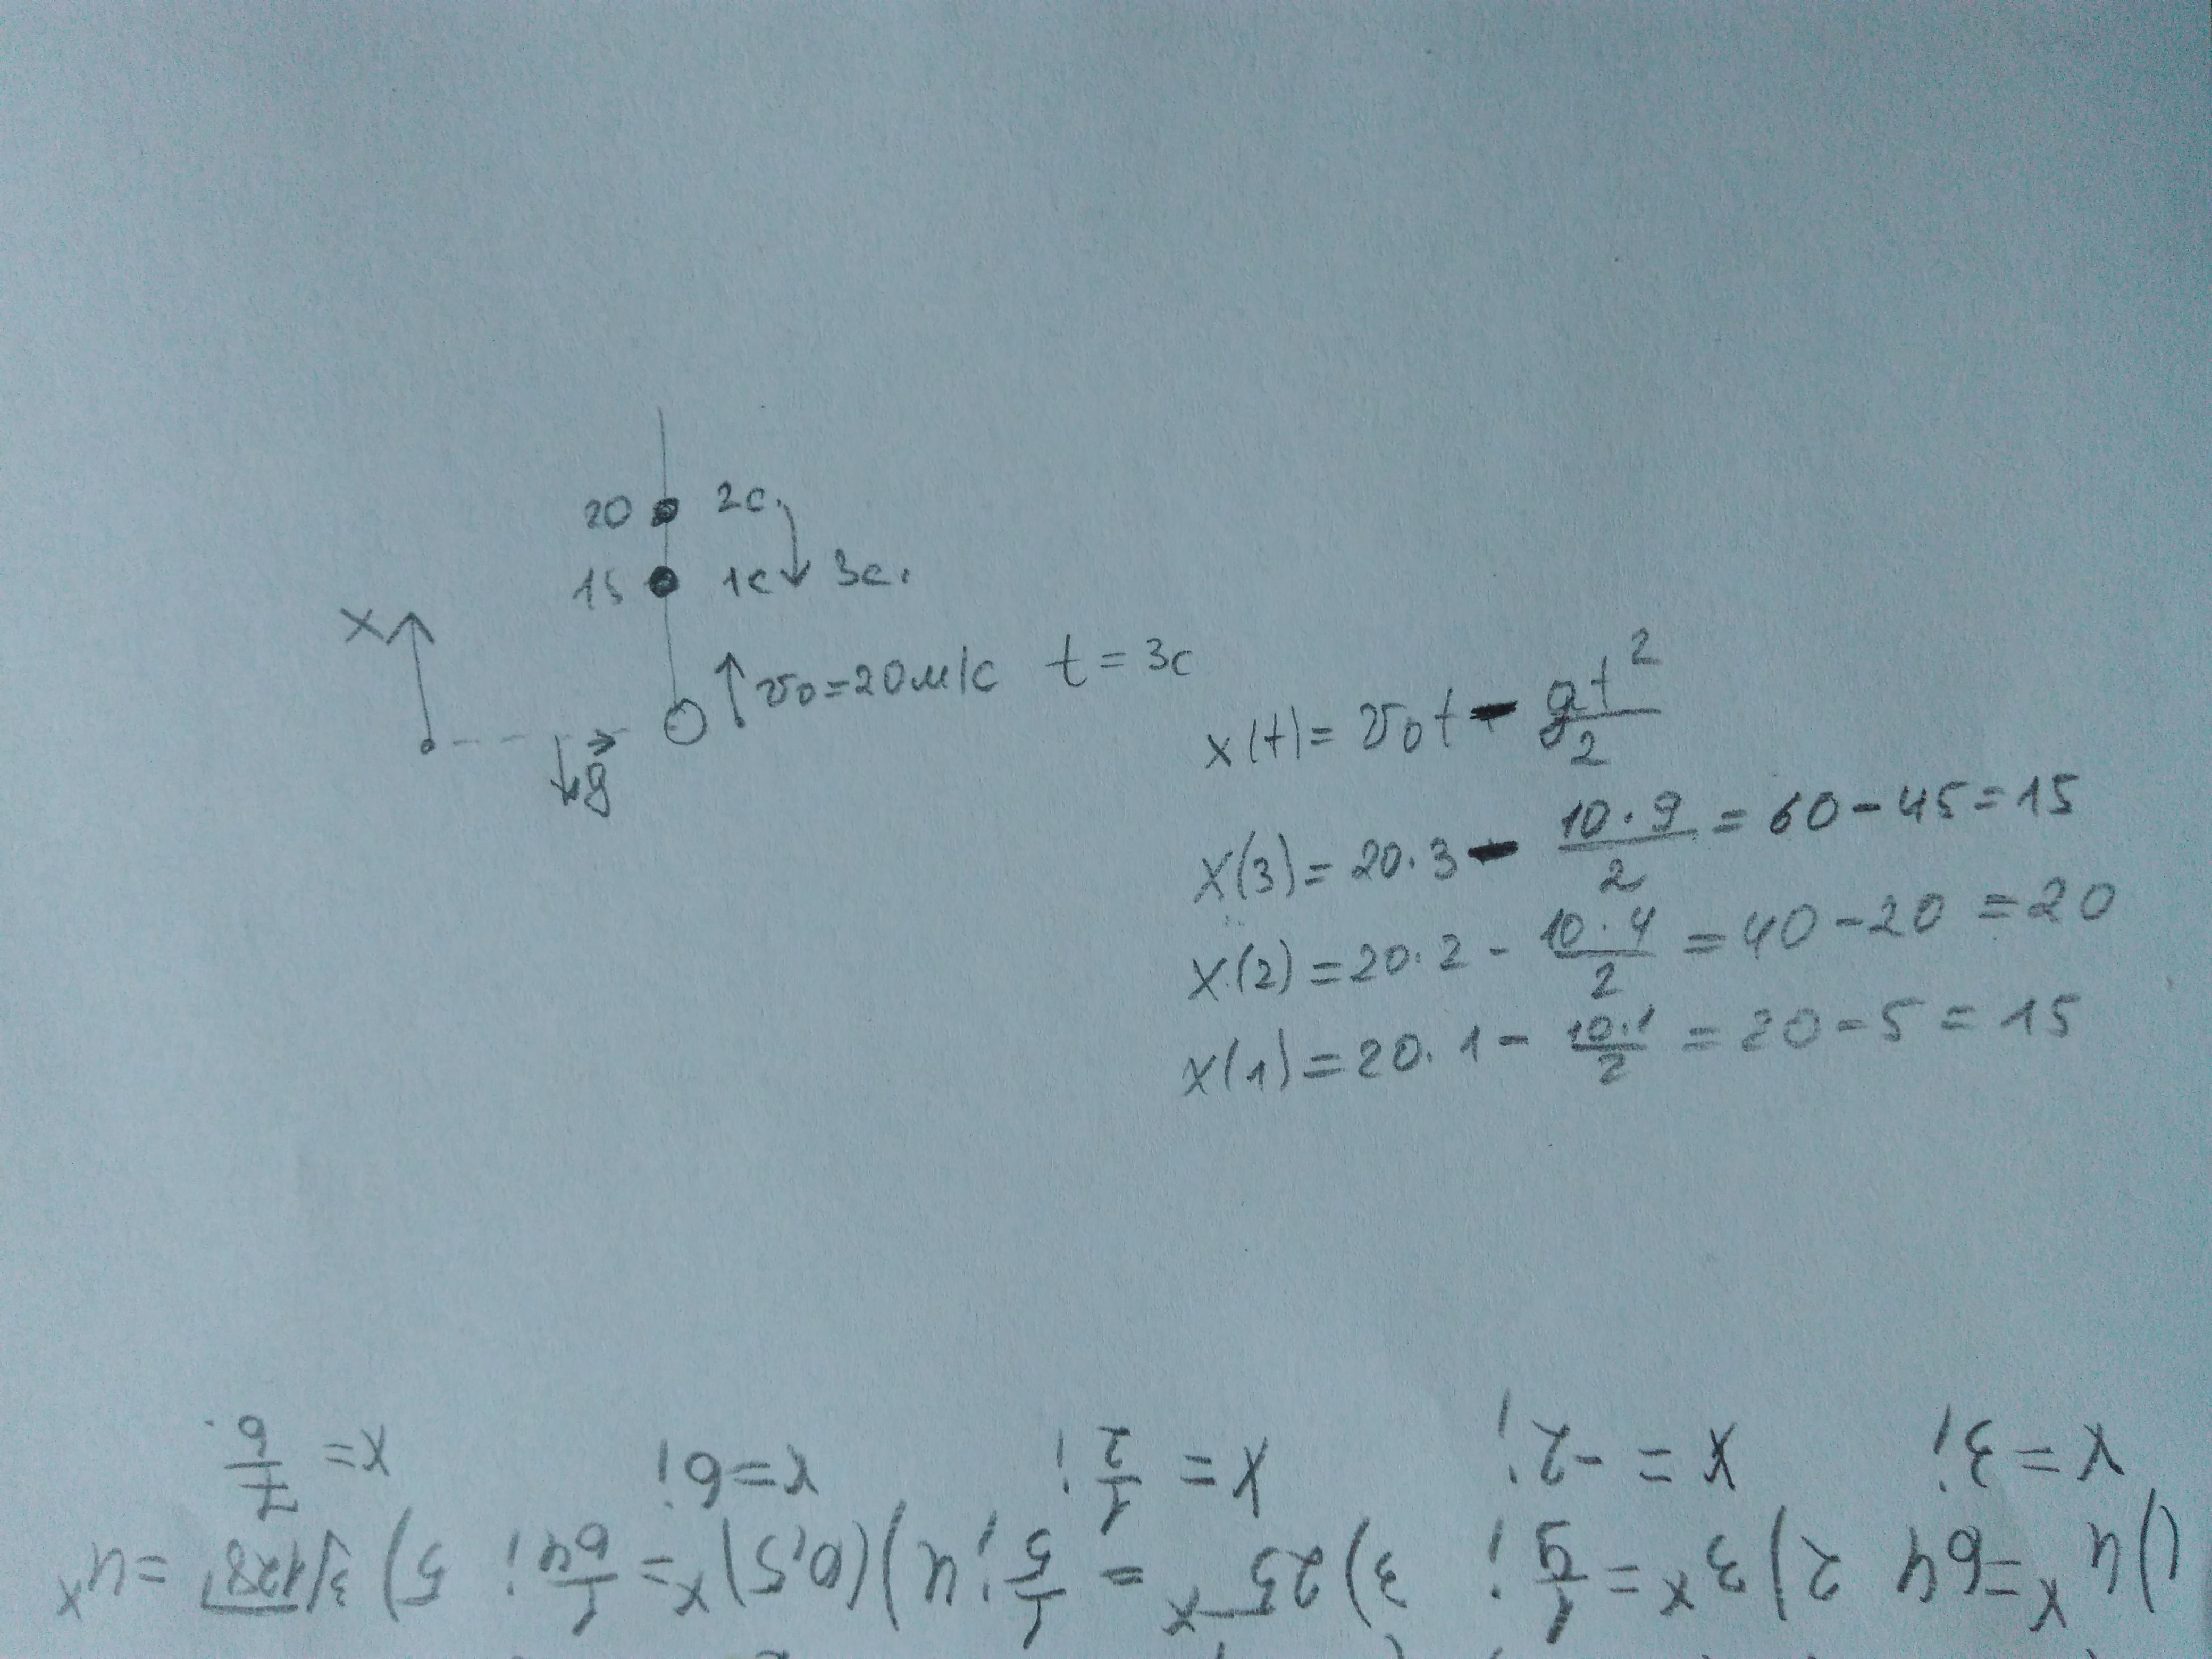 20 2с.
15 1с 3с.
x
v₀=20м/с t=3с
g⃗
x(t)= v₀t - gt²/2
x(3)= 20·3 - 10·9/2 = 60-45=15
x(2)=20·2 - 10·4/2 = 40-20=20
x(1)=20·1- 10·1/2 = 20-5=15
1)4^x=64 2)3^x=1/9! 3)25^-x=1/5! 4)(0,5)^x=1/64! 5)³√128=4^x
x=3! x=-2! x=1/2! x=6! x=7/6.